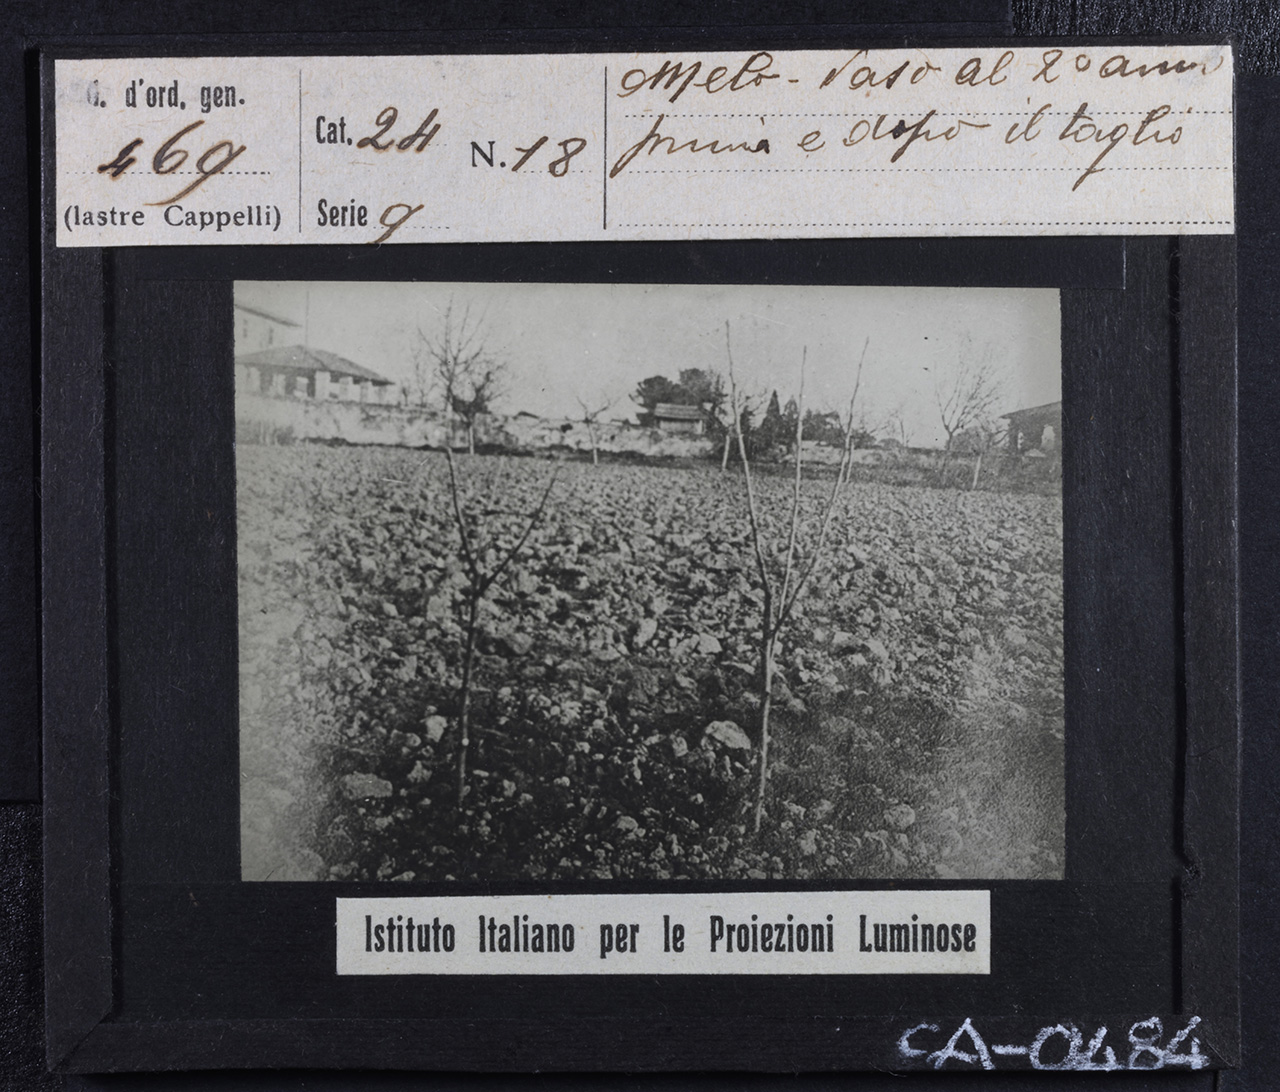 N. d'ord. gen.
469
(lastre Cappelli)
Cat. 24 N. 18
Serie g
Melo - Vaso al 2º anno
prima e dopo il taglio
Istituto Italiano per le Proiezioni Luminose
CA-0484